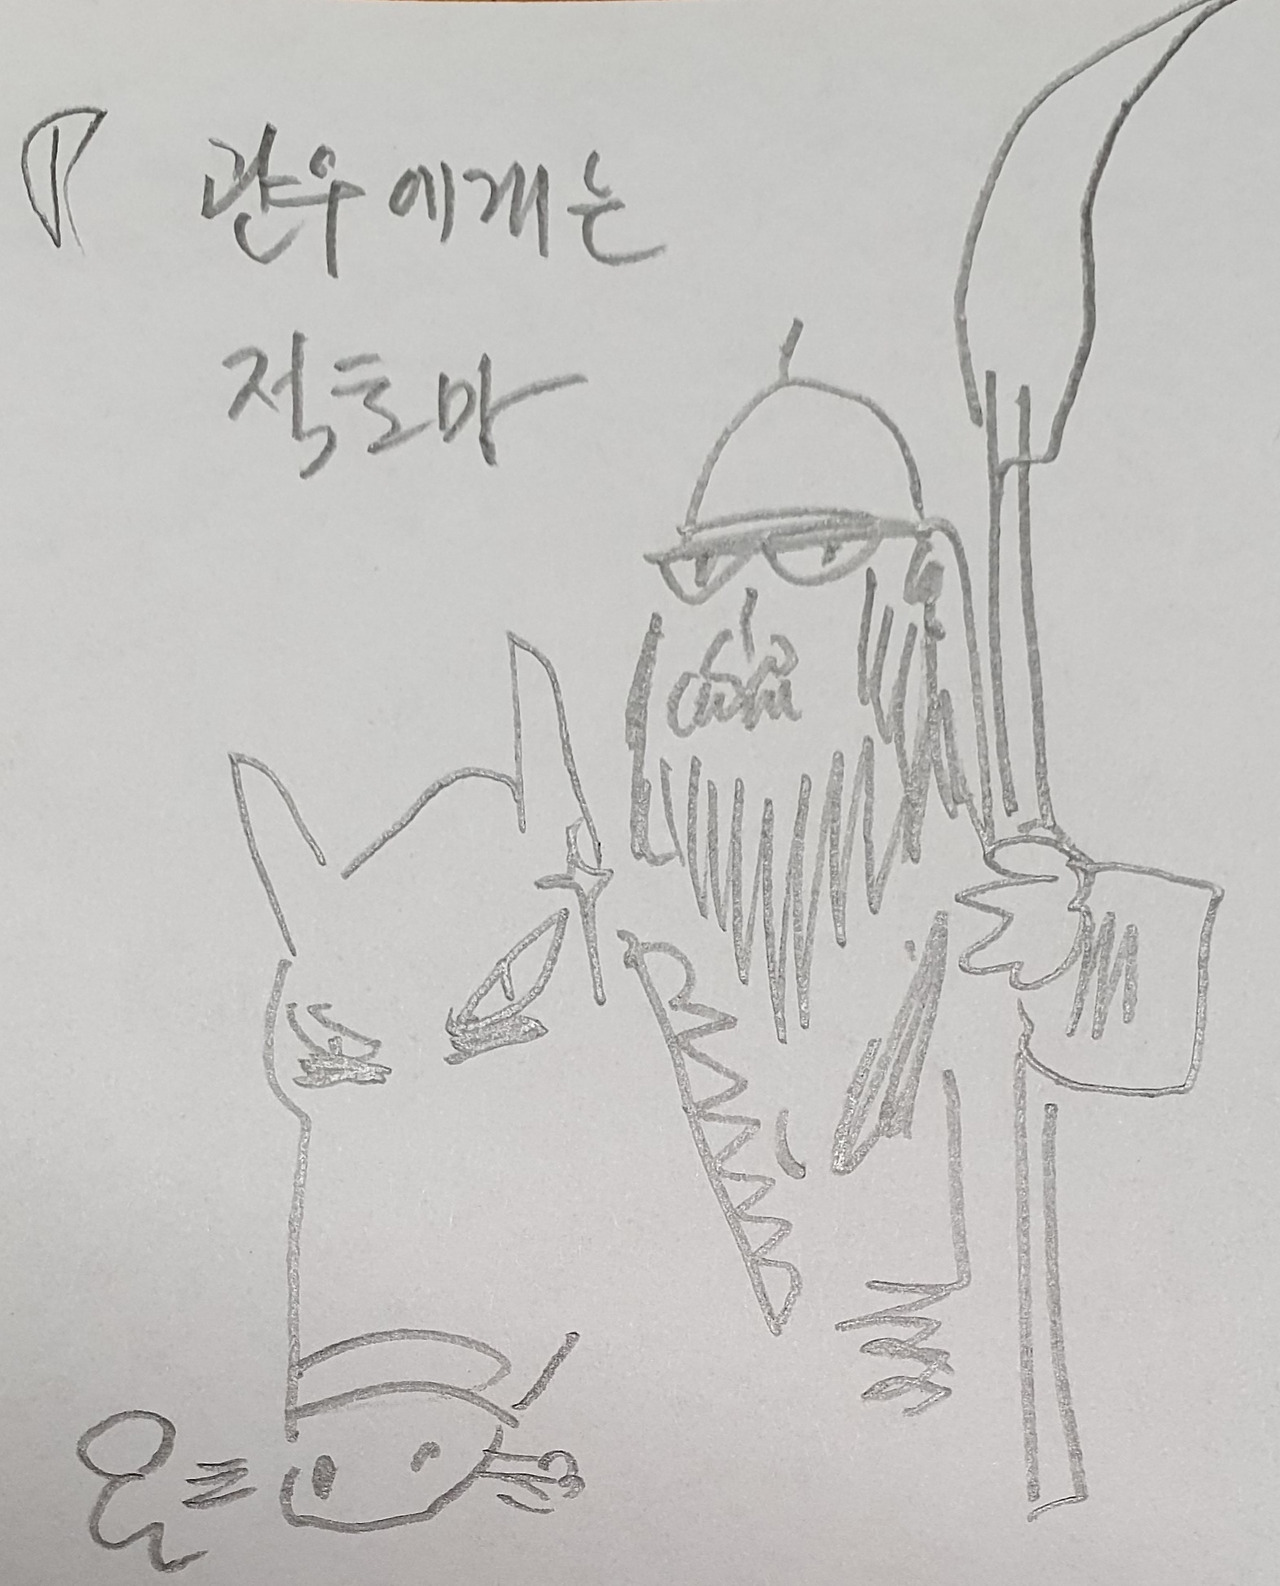 관우에게는
적토마